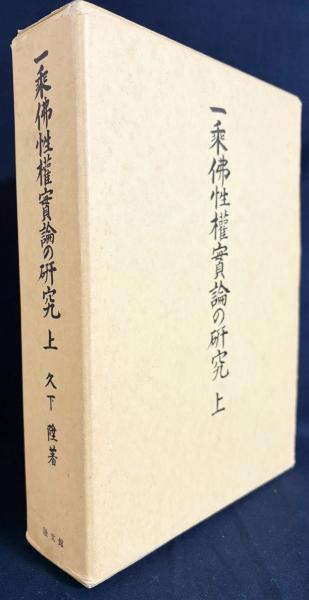 一乘佛性權實論の研究 上
久下 陞著
隆文館
一乘佛性權實論の研究 上